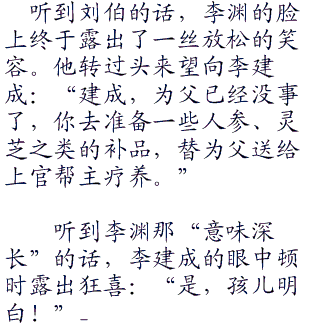 听到刘伯的话，李渊的脸
上终于露出了一丝放松的笑
容。他转过头来望向李建
成：“建成，为父已经没事
了，你去准备一些人参、灵
芝之类的补品，替为父送给
上官帮主疗养。”
听到李渊那“意味深
长”的话，李建成的眼中顿
时露出狂喜：“是，孩儿明
白！”_